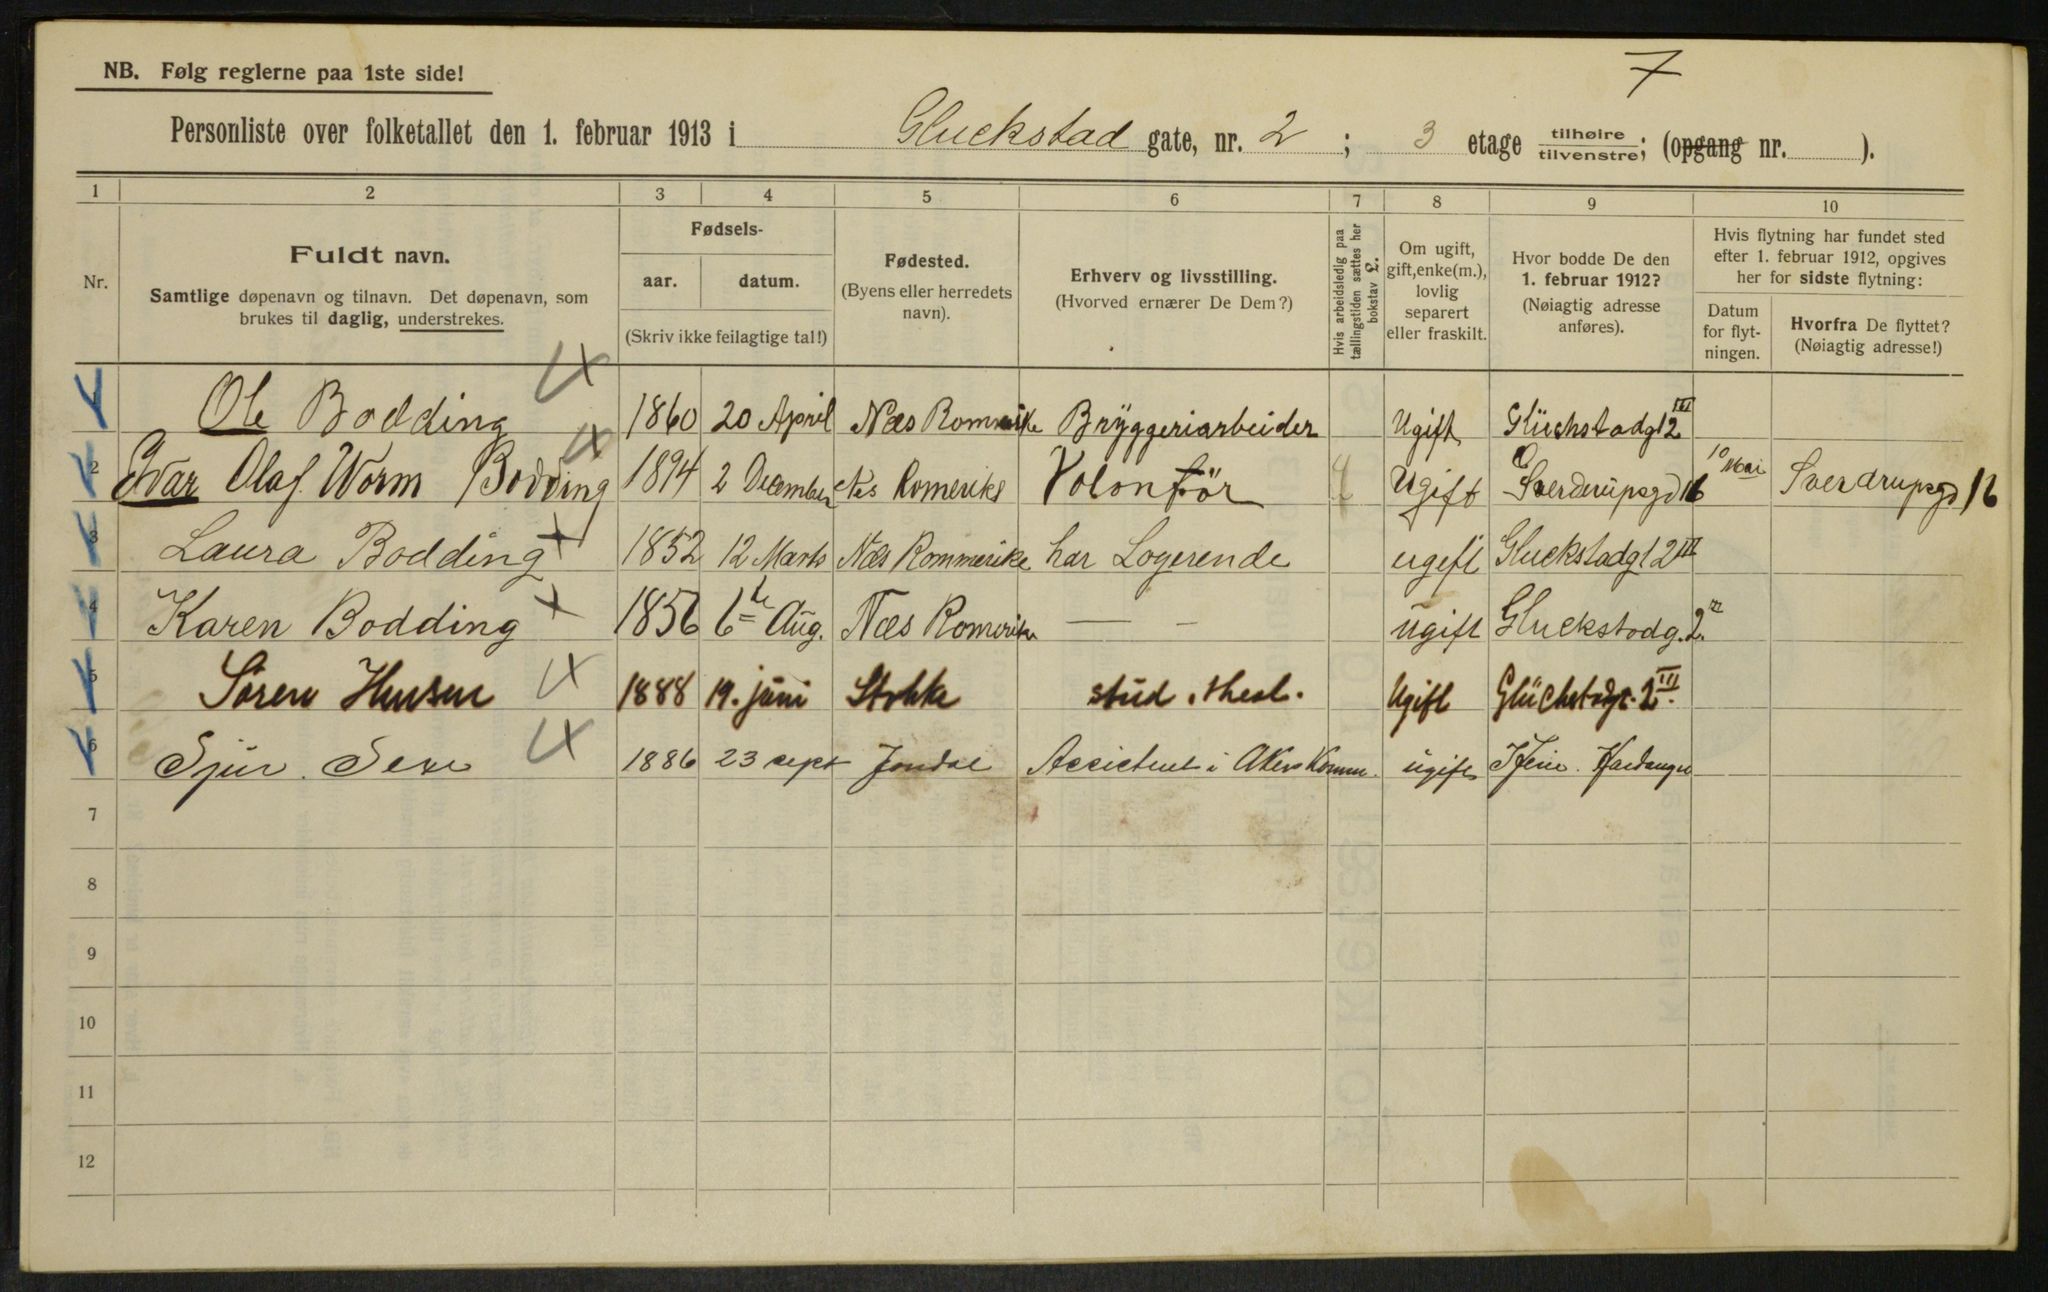 7
NB. Følg reglerne paa 1ste side!
Personliste over folketallet den 1. februar 1913 i Gluckstad gate, nr. 2 ; 3 etage tilhøire / tilvenstre; (opgang nr. ).
1 2 3 4 5 6 7 8 9 10
Nr.
Fuldt navn.
Samtlige døpenavn og tilnavn. Det døpenavn, som
brukes til daglig, understrekes.
Fødsels-
aar. datum.
(Skriv ikke feilagtige tal!)
Fødested.
(Byens eller herredets
navn).
Erhverv og livsstilling.
(Hvorved ernærer De Dem?)
Hvis arbeidsledig paa
tællingstiden sættes her
bokstav L.
Om ugift,
gift, enke(m.),
lovlig
separert
eller fraskilt.
Hvor bodde De den
1. februar 1912?
(Nøiagtig adresse
anføres).
Hvis flytning har fundet sted
efter 1. februar 1912, opgives
her for sidste flytning:
Datum
for flyt-
ningen.
Hvorfra De flyttet?
(Nøiagtig adresse!)
Ole Bodding 1860 20 April Næs Romerike Bryggeriarbeider Ugift Glückstadgt 2 III
2 Ivar Olaf Worm Bodding 1894 2 December Nes Romerike Volontör Ugift Sverdrupsgd 16 10 Mai Sverdrupsgd 16
3 Laura Bodding 1852 12 Marts Næs Rommerike har Logerende ugift Gluckstadgt 2 III
4 Karen Bodding 1856 6te Aug. Næs Romerike — - ugift Gluckstadg. 2 III
5 Søren Hansen 1888 19. juni Stokke stud. theol. Ugift Glückstadgt. 2 III.
6 Sjur Sexe 1886 23 sept Jondal Assistent i Akers Komm. ugift Hardanger
7
8
9
10
11
12